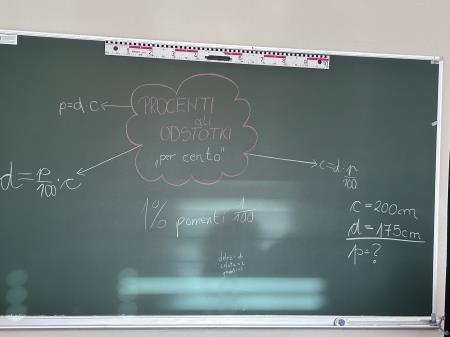 PROCENTI
ali
ODSTOTKI
„per cento"
p=d·c
d=p/100·c
c=d·p/100
1% pomeni 1/100
c=200cm
d=175cm
p=?